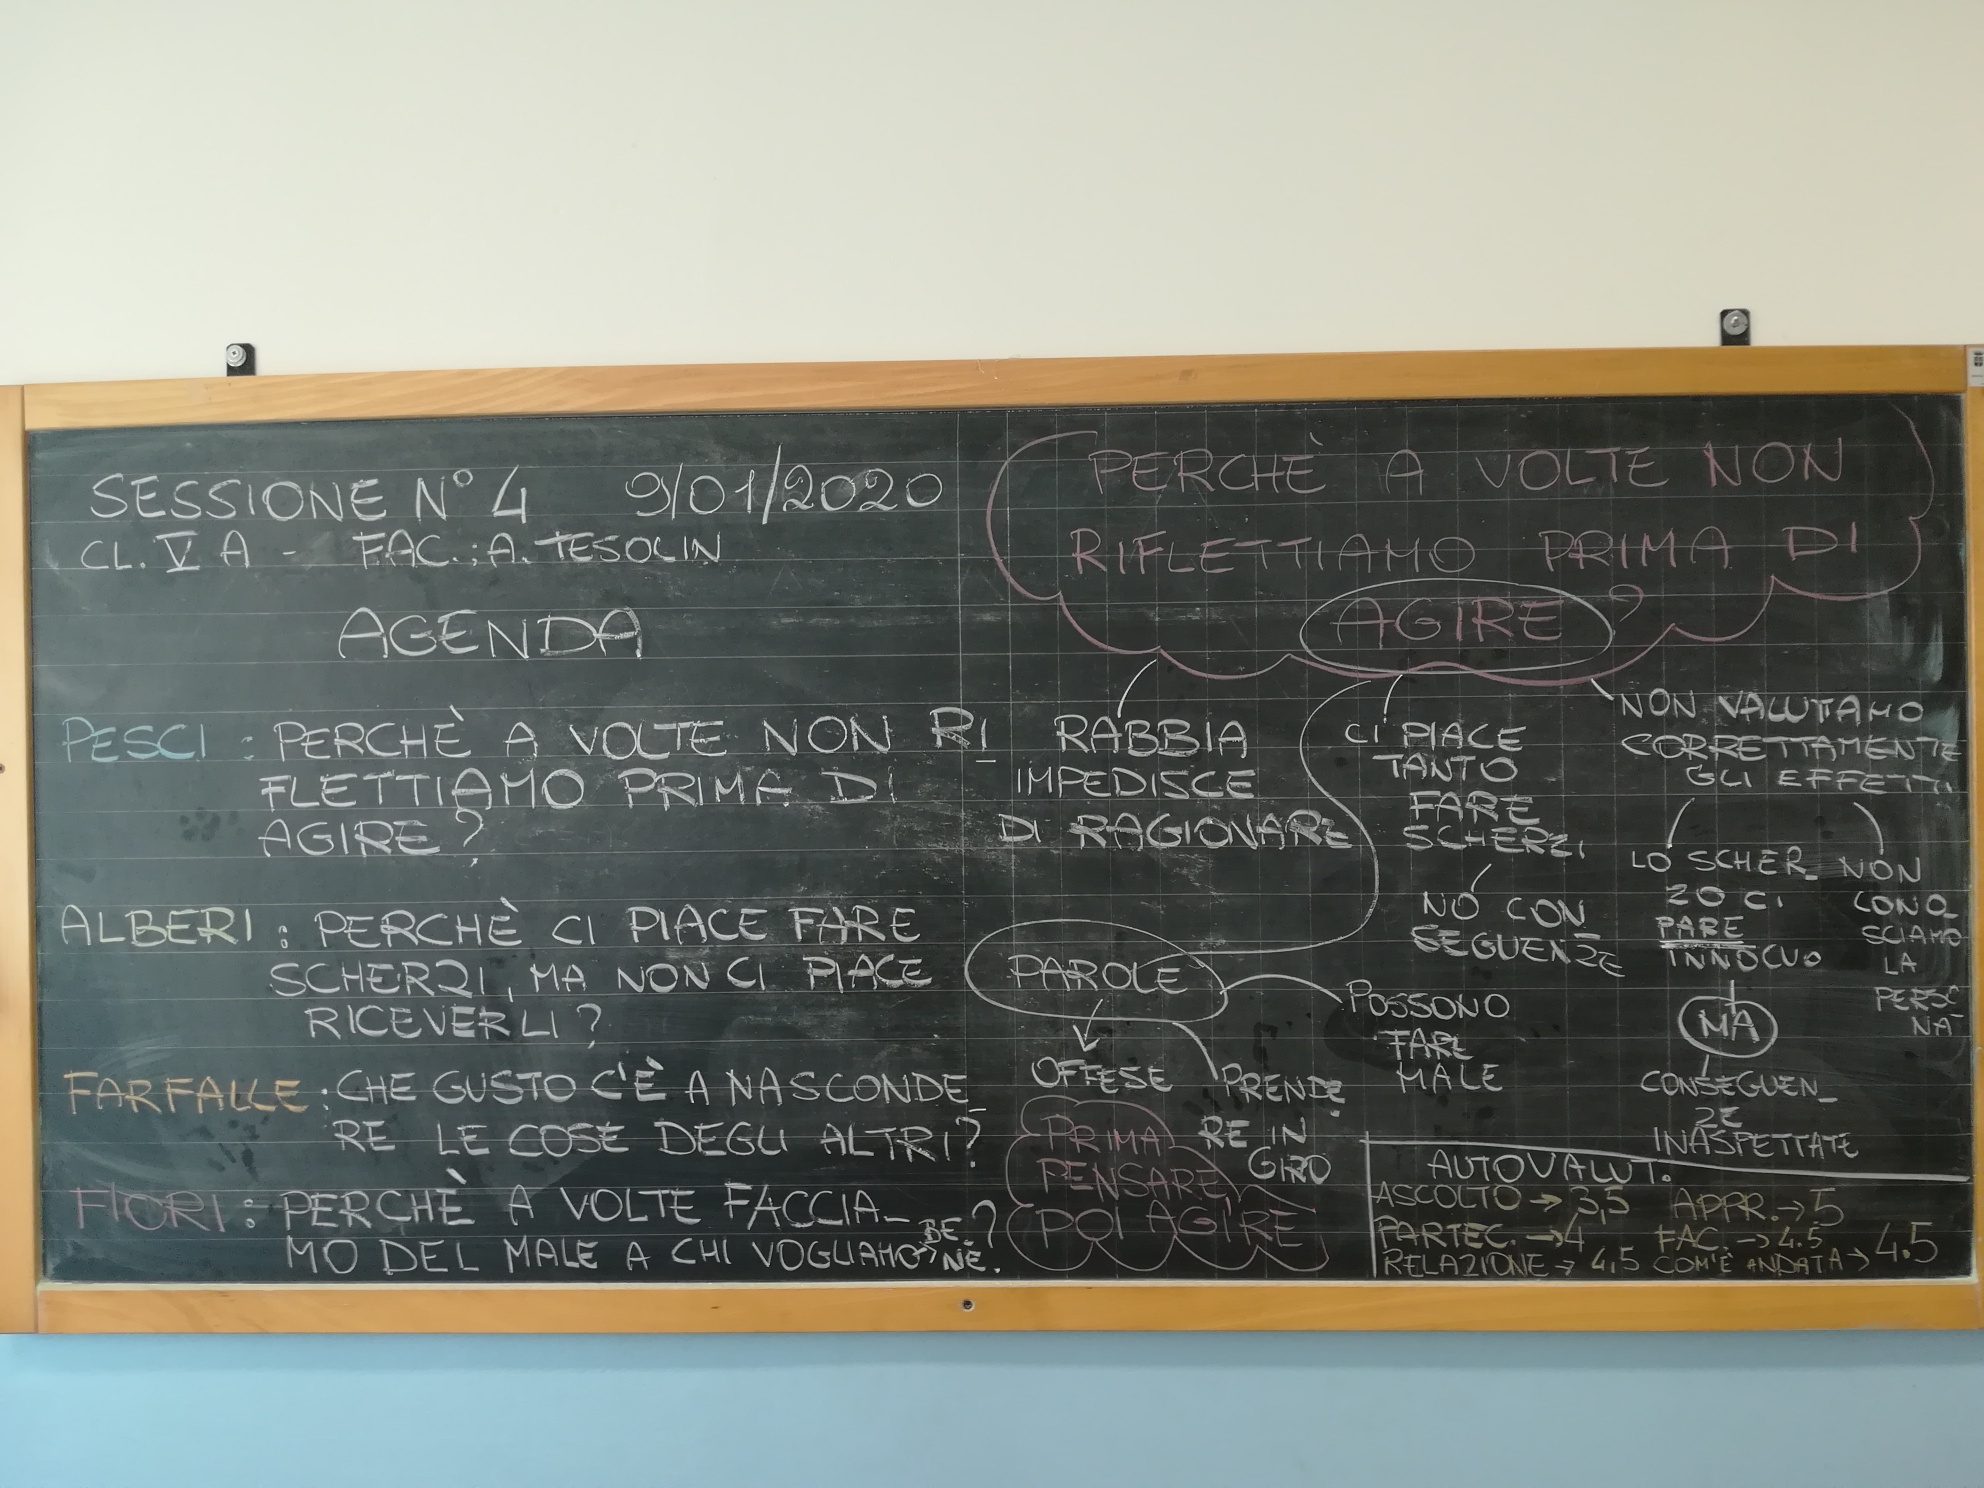 SESSIONE N° 4 9/01/2020
CL. V A - FAC.: A. TESOLIN
AGENDA
PESCI : PERCHÈ A VOLTE NON RI
FLETTIAMO PRIMA DI
AGIRE ?
ALBERI : PERCHÈ CI PIACE FARE
SCHERZI, MA NON CI PIACE
RICEVERLI ?
FARFALLE : CHE GUSTO C'È A NASCONDE_
RE LE COSE DEGLI ALTRI ?
FIORI : PERCHÈ A VOLTE FACCIA_
MO DEL MALE A CHI VOGLIAMO → BE_
NE. ?
PERCHÈ A VOLTE NON
RIFLETTIAMO PRIMA DI
AGIRE ?
RABBIA
IMPEDISCE
DI RAGIONARE
CI PIACE
TANTO
FARE
SCHERZI
NO CON_
SEGUENZE
NON VALUTIAMO
CORRETTAMENTE
GLI EFFETTI
LO SCHER_
ZO CI
PARE
INNOCUO
MA
CONSEGUEN_
ZE
INASPETTATE
NON
CONO_
SCIAMO
LA
PERSO_
NA
PAROLE
OFFESE
PRENDE_
RE IN
GIRO
POSSONO
FARE
MALE
PRIMA
PENSARE
POI AGIRE
AUTOVALUT.
ASCOLTO → 3,5 APPR. → 5
PARTEC. → 4 FAC. → 4.5
RELAZIONE → 4,5 COM'È ANDATA → 4.5